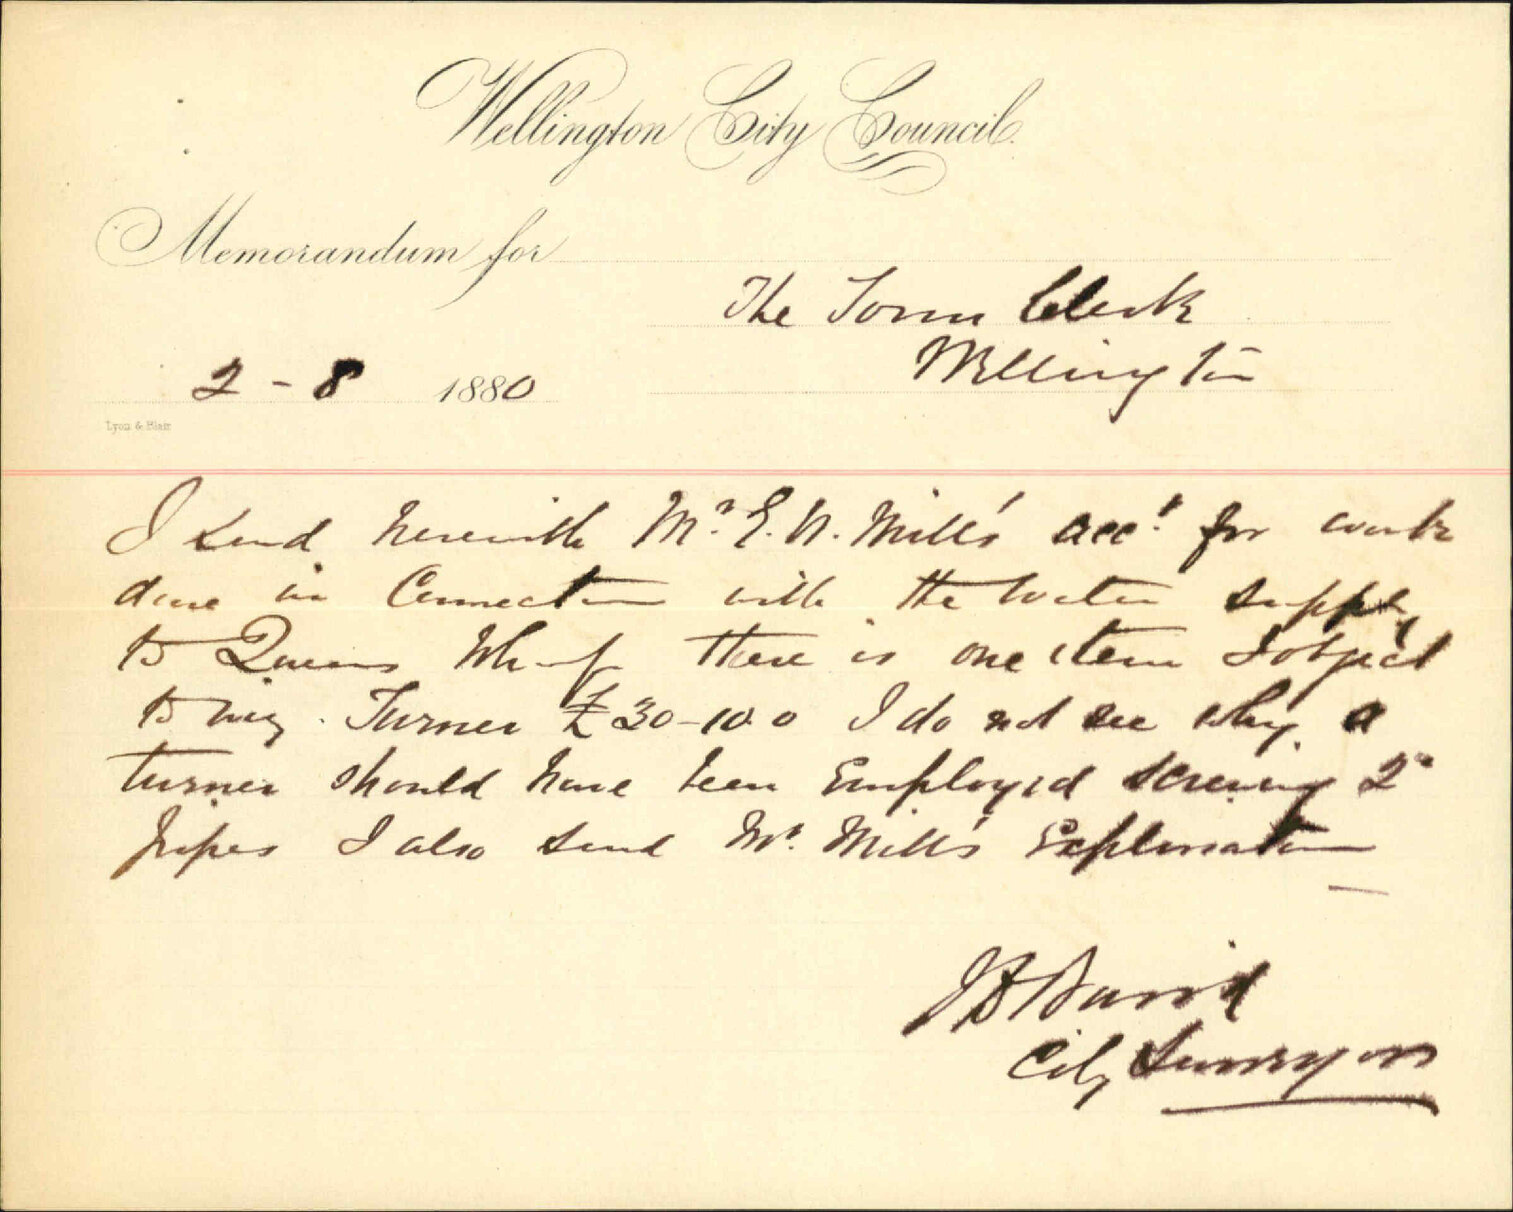 Wellington City Council.
Memorandum for
The Town Clerk
Wellington
2 - 8 1880
Lyon & Blair
I send herewith Mr. E. W. Mill's acct. for work
done in connection with the water supply
to Queens Wharf there is one item I object
to viz. Turner £30-10.0 I do not see why a
turner should have been employed screwing 2"
pipes I also send Mr. Mill's explanation
City Surveyor